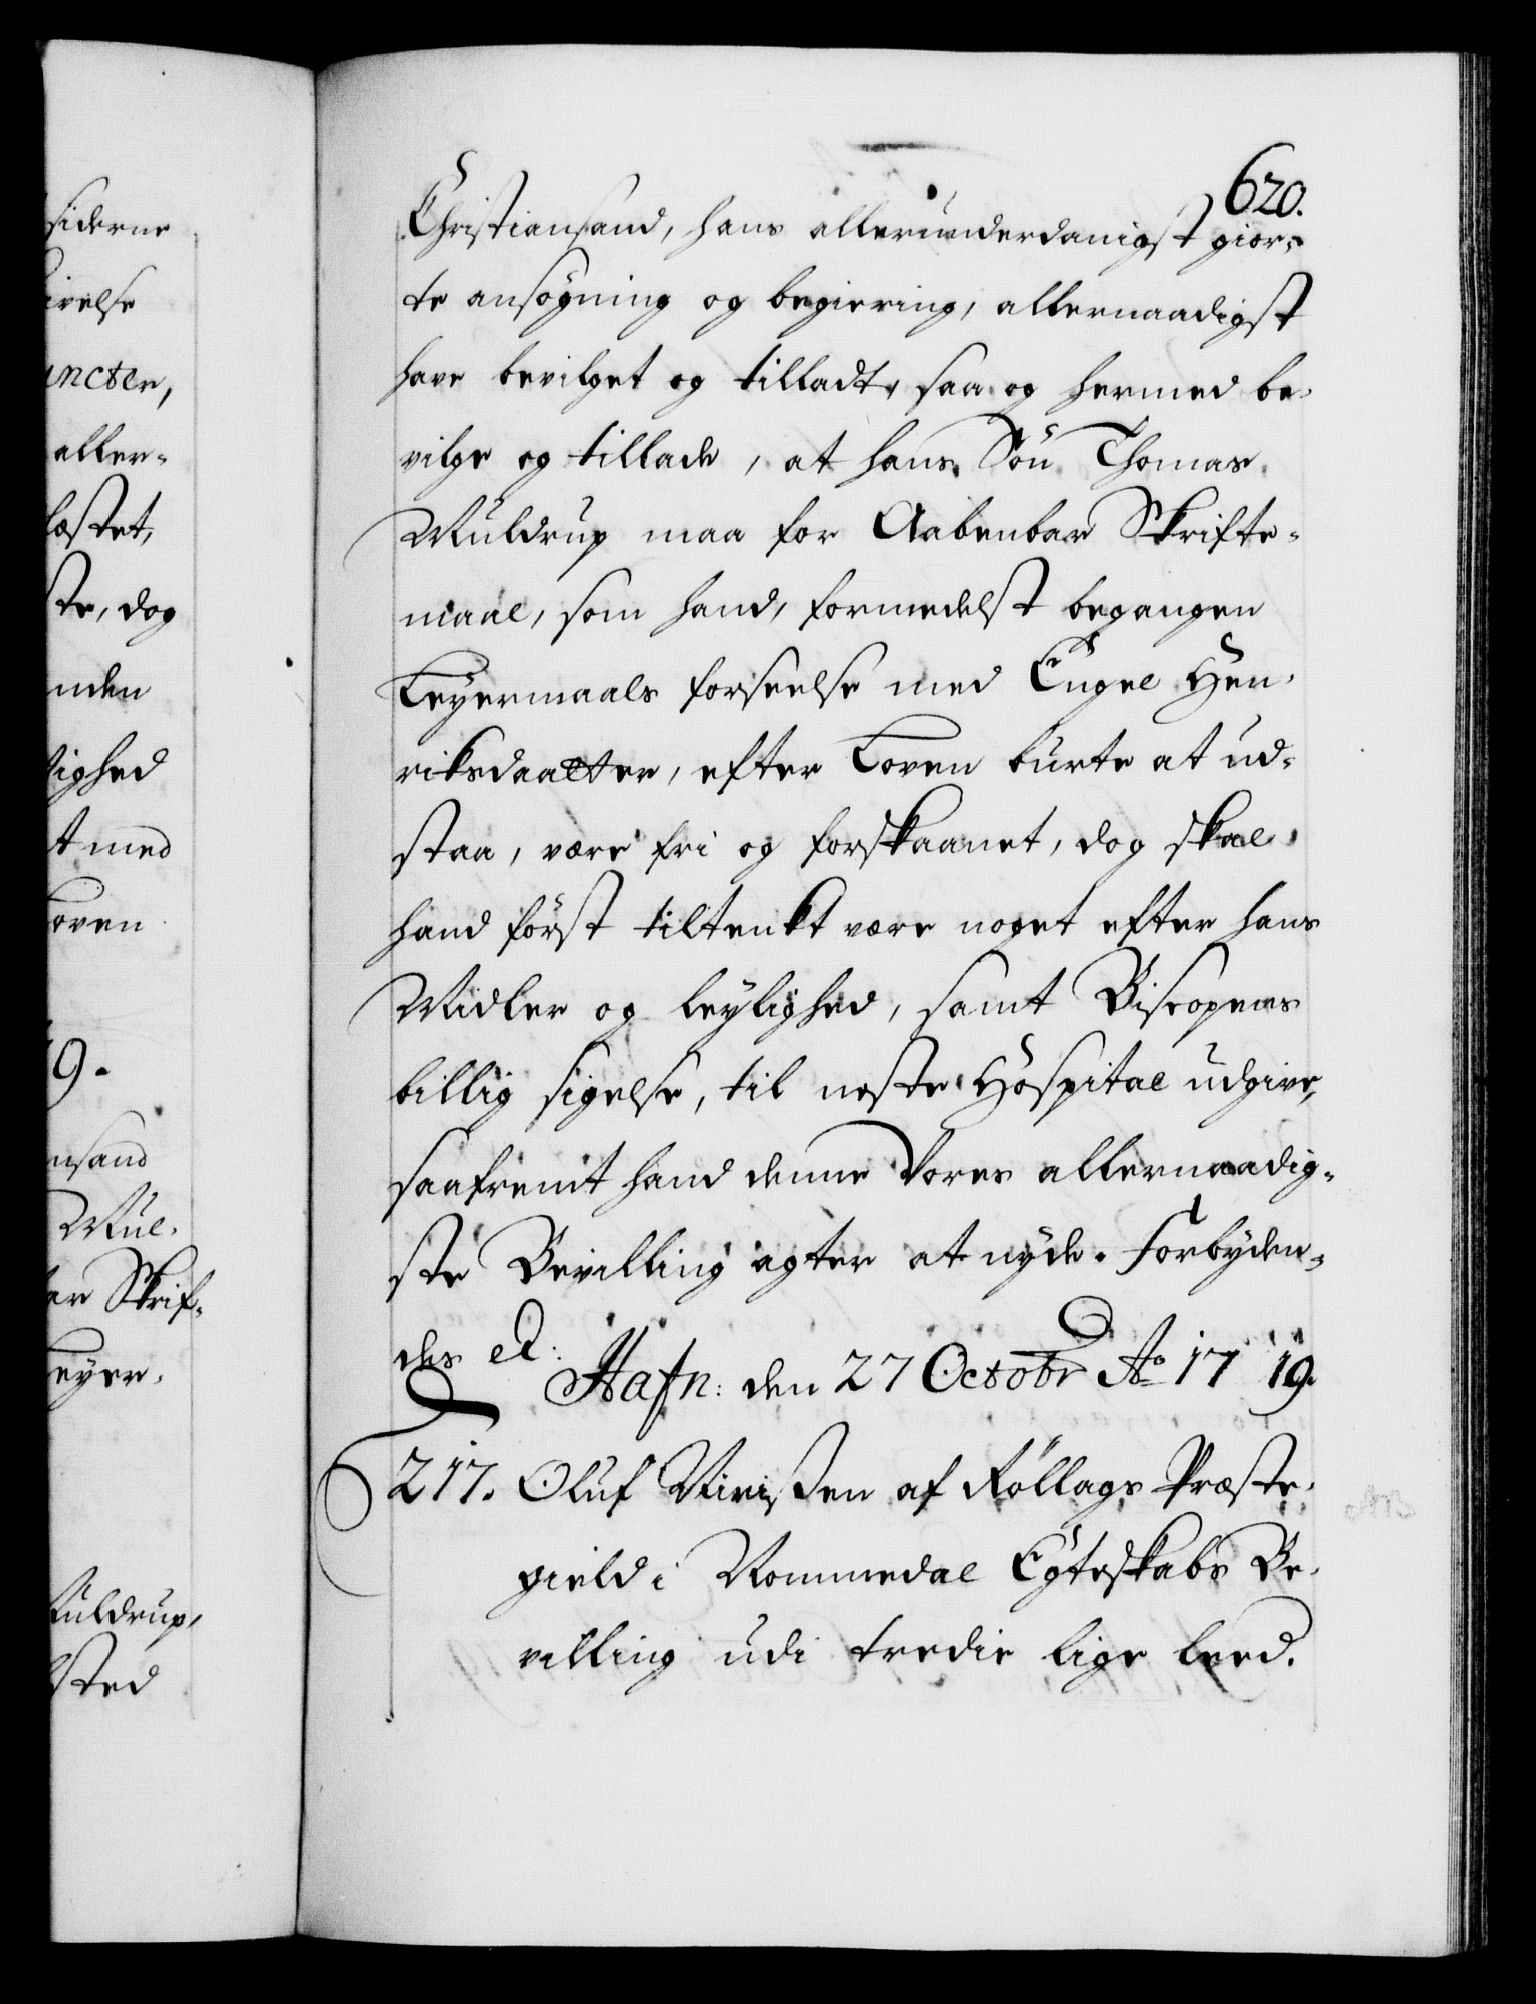 620.
Christiansand, hans allerunderdanigst gior-
te ansøgning og begiering, allernaadigst
have bevilget og tilladt, saa og hermed be-
vilge og tillade, at hans Søn Thomas
Muldrup maa for Aabenbar Skrifte-
maal, som hand, formedelst begangen
Leyermaals forseelse med Engel Hen-
riksdaatter, efter Loven burte at ud-
staa, være fri og forskaanet, dog skal
hand først tiltenkt være noget efter hans
Midler og leylighed, samt Biscopens
billig sigelse, til neste Hospital udgive,
saafremt hand denne Vores allernaadig-
ste Bevilling agter at nyde. Forbyden-
des et:
Hafn: den 27 Octobr Ao 1719.
217. Oluf Nirissen af Rollags Præste-
gield i Nommedal Egteskabs Be-
villing udi tredie lige leed.
siderne
ivelse
uncter,
aller-
læstet,
ste, dog
nden
lighed
t med
Loven
19.
nsand
Mul-
ar Skrif-
Leyer-
Muldrup,
sted